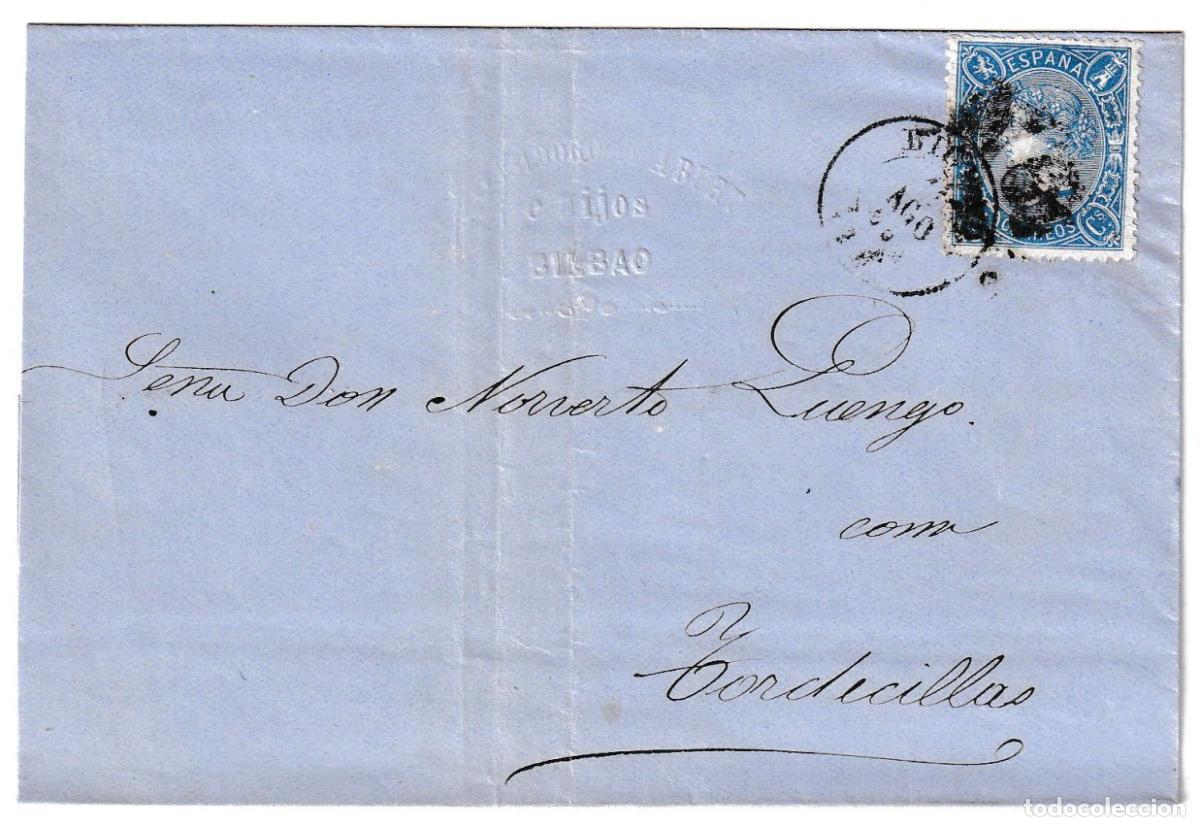 ESPAÑA
CORREOS
Cs
AGO
e Hijos
BILBAO
Señr Don Norverto Luengo.
com
Tordecillas
todocoleccion